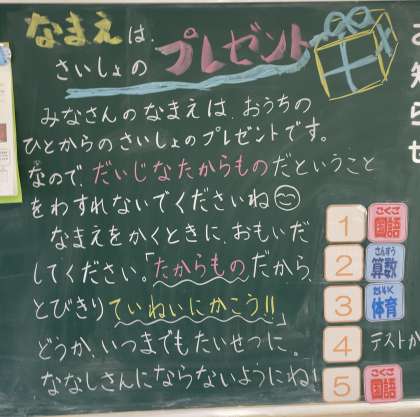 なまえは、
さいしょの
プレゼント
みなさんのなまえは、おうちの
ひとからのさいしょのプレゼントです。
なので、だいじなたからものだということ
をわすれないでくださいね
なまえをかくときに、おもいだ
してください。「たからものだから、
とびきりていねいにかこう!!」
どうか、いつまでもたいせつに。
ななしさんにならないようにね!
お知らせ
1 こくご 国語
2 さんすう 算数
3 たいいく 体育
4 テストが
5 こくご 国語